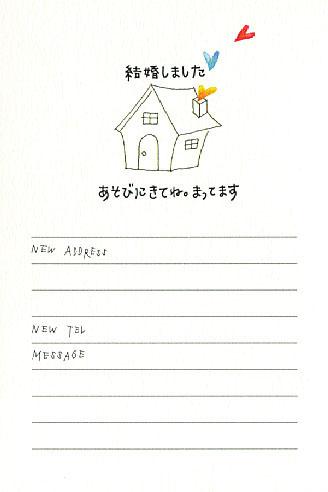 結婚しました
あそびにきてね。まってます
NEW ADDRESS
NEW TEL
MESSAGE